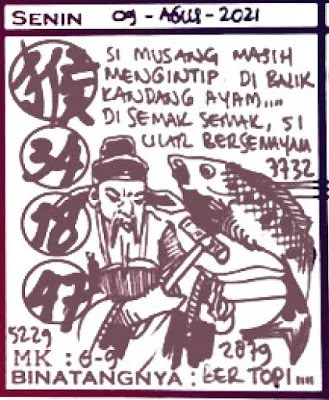 SENIN 09 - AGUS - 2021
猴
SI MUSANG MASIH
MENGINTIP DI BALIK
KANDANG AYAM....
DI SEMAK SEMAK, SI
ULAR BERSEMAYAM
3732
34
18
47
5229
2879
MK : 6-9
BINATANGNYA : BERTOPI....